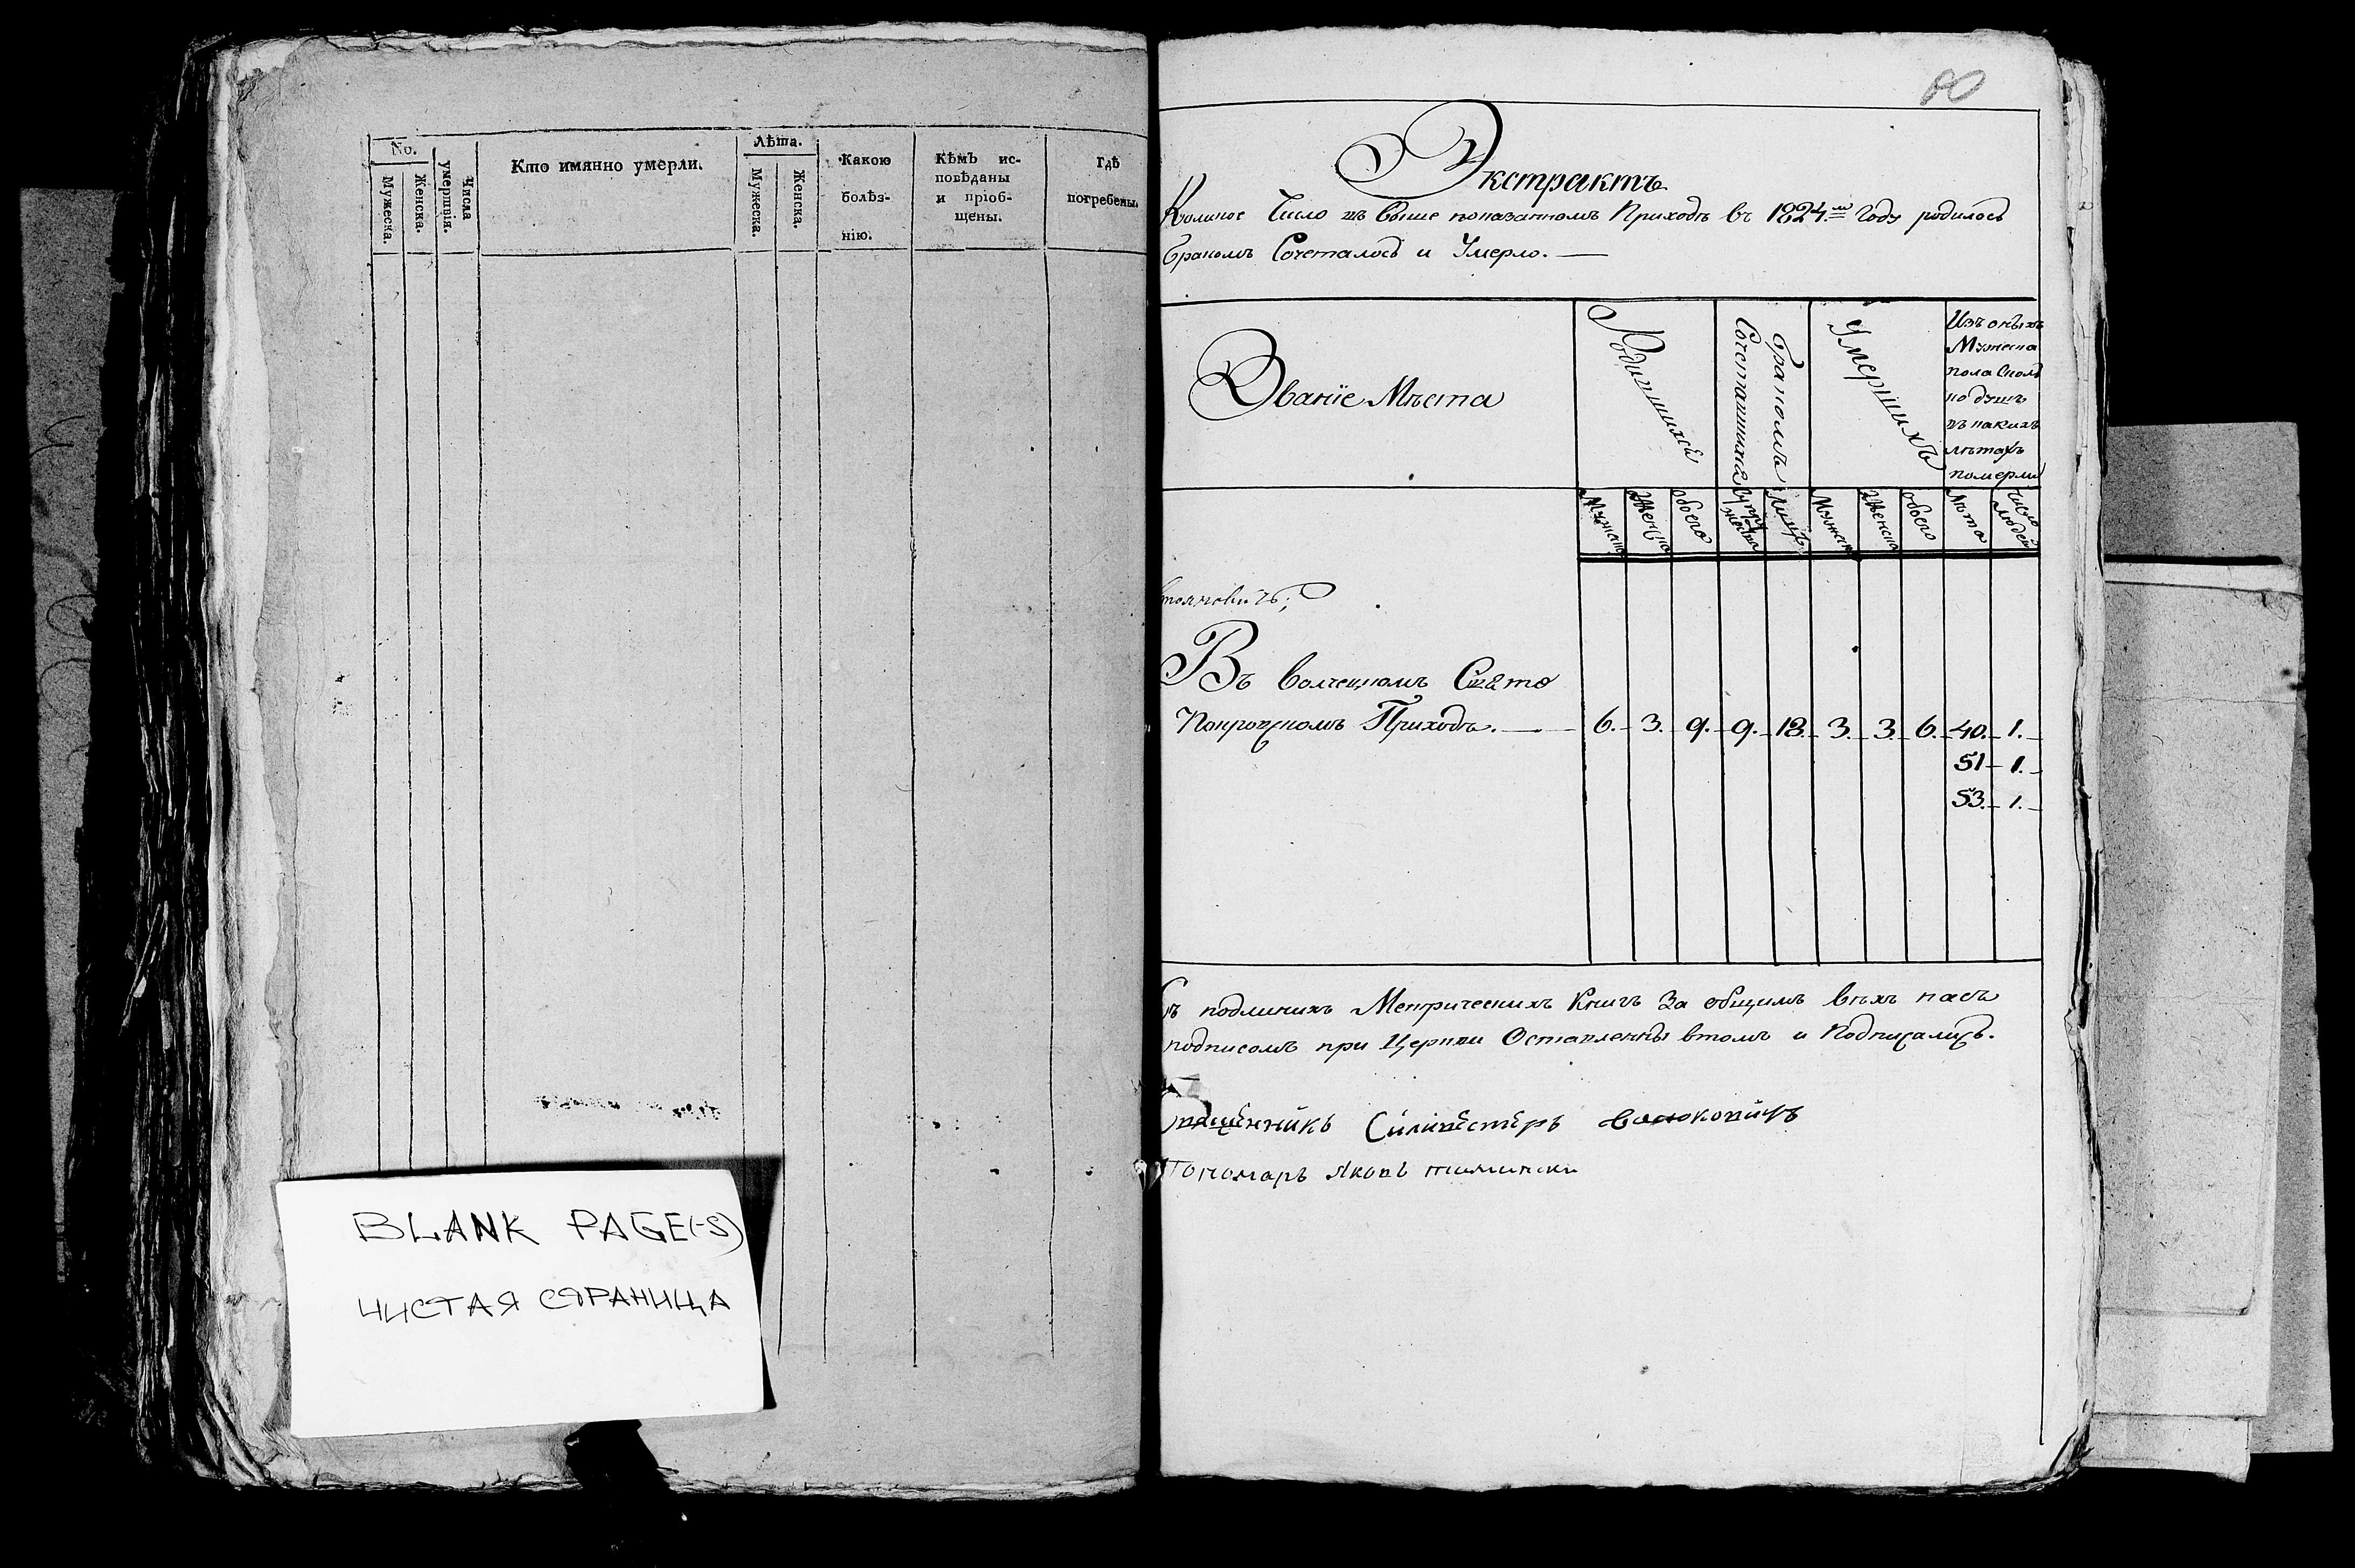 No.
Мужеска.
Женска.
Числа
умершiя.
Кто имянно умерли.
Лѣта.
Мужеска.
Женска.
Какою
болѣз-
нiю.
Кѣмъ ис-
повѣданы
и прiоб-
щены.
Гдѣ
погребены.
BLANK PAGE(-S)
ЧИСТАЯ СТРАНИЦА
60
Экстрактъ
Коликое Число въ выше показанномъ Приходѣ въ 1824.м Году родилось
бракомъ Сочеталось и Умерло. —
Званiе Мѣста
Родившихся
Бракомъ
Сочетавшихся
Умершихъ
Изъ оныхъ
Мужеска
пола сколь
ко душъ
въ какихъ
лѣтахъ
померли
Мужеска
Женска
обоего
Супру
жества
Лицъ
Мужеска
Женска
обоего
Лѣта
Число
людей
Въ волчецкомъ Свято
Покровскомъ Приходѣ. — 6. 3. 9. 9. 18. 3. 3. 6. 40. 1.
51 1.
53. 1.
Съ подлинихъ Метрическихъ Книгъ За общимъ всѣхъ насъ
подписомъ при Церкви Оставленны втомъ и Подписались.
Священникъ Силивестеръ
Пономарь Яковъ